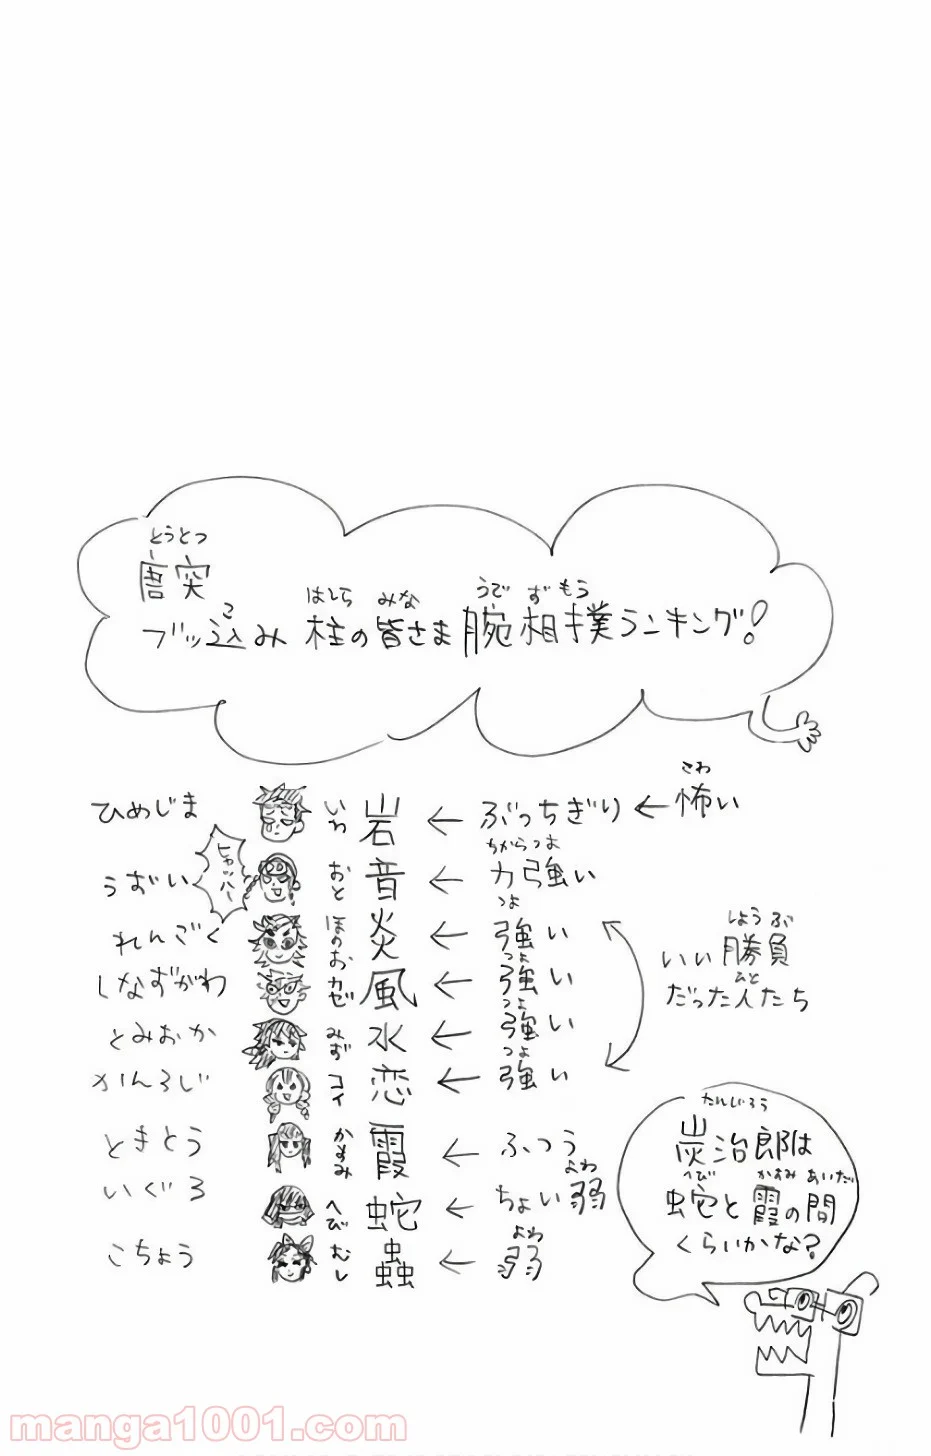 とうとつ
唐突
こ はしら みな うで ず もう
ブッ込み 柱の皆さま腕相撲ランキング!
こわ
ひめじま いわ 岩 ← ぶっちぎり ← 怖い
ヒャッハー
ちからつよ
うずい おと 音 ← 力強い
つよ
れんごく ほのお 炎 ← 強い
つよ
しなずがわ カゼ 風 ← 強い
つよ
とみおか みず 水 ← 強い
つよ
かんろじ コイ 恋 ← 強い
しょうぶ
いい勝負
ひと
だった人たち
ときとう かすみ 霞 ← ふつう
よわ
いぐろ へび 蛇 ← ちょい弱
よわ
こちょう むし 蟲 ← 弱
たんじろう
炭治郎は
へび かすみ あいだ
蛇と霞の間
くらいかな?
manga1001.com